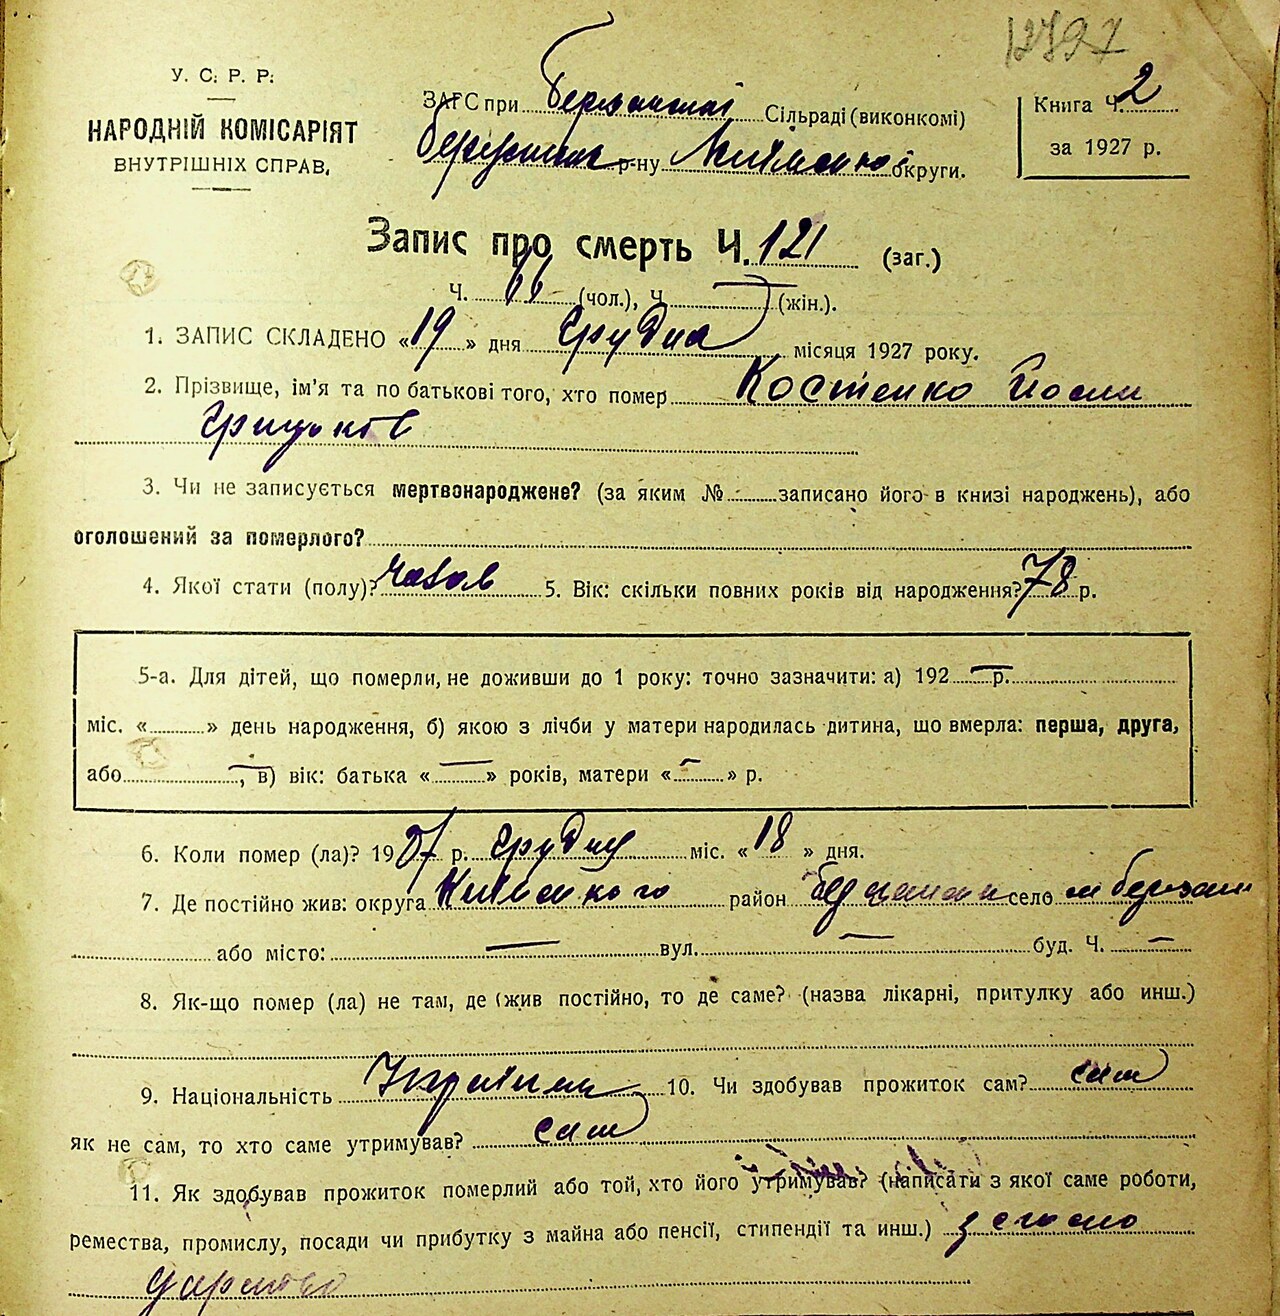 12797
У. С. Р. Р.
НАРОДНІЙ КОМІСАРІЯТ
ВНУТРІШНІХ СПРАВ.
ЗАГС при Березанській Сільраді (виконкомі)
р-ну округи.
Книга Ч. 2
за 1927 р.
Запис про смерть Ч. 121 (заг.)
Ч. 66 (чол.), Ч. — (жін.).
1. ЗАПИС СКЛАДЕНО «19» дня Грудня місяця 1927 року.
2. Прізвище, ім'я та по батькові того, хто помер Костенко Йосип
Грицьков
3. Чи не записується мертвонароджене? (за яким № записано його в книзі народжень), або
оголошений за померлого?
4. Якої стати (полу)? чолов 5. Вік: скільки повних років від народження? 78 р.
5-а. Для дітей, що померли, не доживши до 1 року: точно зазначити: а) 192 — р.
міс. « » день народження, б) якою з лічби у матери народилась дитина, що вмерла: перша, друга,
або —, в) вік: батька « — » років, матери « — » р.
6. Коли помер (ла)? 1927 р. Грудня міс. «18» дня.
7. Де постійно жив: округа район село м Березань
або місто: — вул. — буд. Ч. —
8. Як-що помер (ла) не там, де жив постійно, то де саме? (назва лікарні, притулку або инш.)
9. Національність Українець 10. Чи здобував прожиток сам? сам
як не сам, то хто саме утримував? сам
11. Як здобував прожиток померлий або той, хто його утримував? (написати з якої саме роботи,
ремества, промислу, посади чи прибутку з майна або пенсії, стипендії та инш.) з сгоспо
дарства